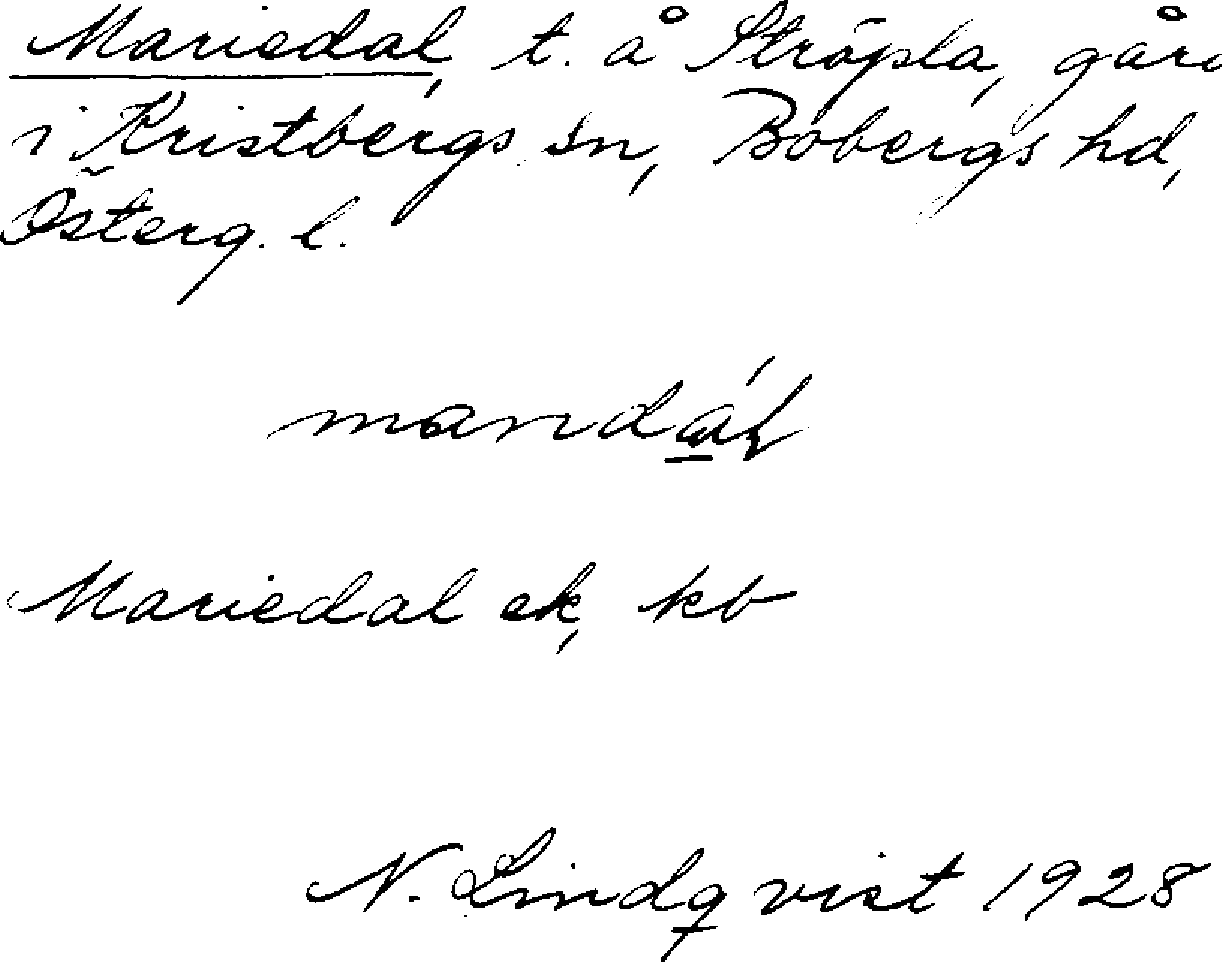 Mariedal, t. å Ströpla, gård
i Kristbergs sn, Bobergs hd,
Österg. l.
Mariedal ek, kb
N. Lindqvist 1928